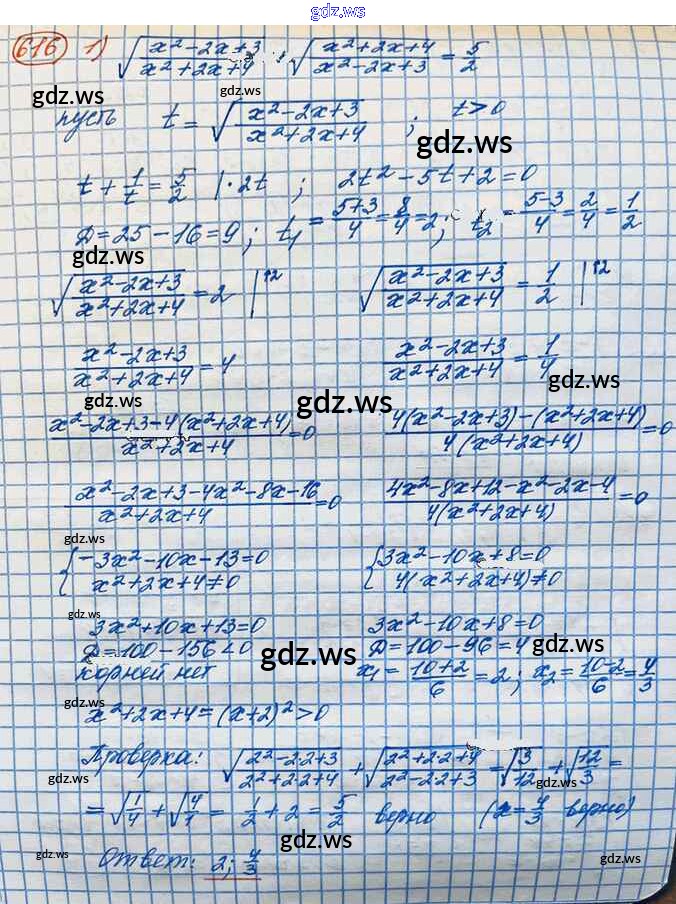 gdz.ws
616 1) √((x²-2x+3)/(x²+2x+4)) + √((x²+2x+4)/(x²-2x+3)) = 5/2
gdz.ws
пусть t = √((x²-2x+3)/(x²+2x+4)) ; t>0
gdz.ws
t + 1/t = 5/2 |·2t ; 2t²-5t+2=0
Д=25-16=9; t₁ = (5+3)/4 = 8/4 = 2; t₂ = (5-3)/4 = 2/4 = 1/2
gdz.ws
√((x²-2x+3)/(x²+2x+4)) = 2 |↑2 √((x²-2x+3)/(x²+2x+4)) = 1/2 |↑2
gdz.ws
(x²-2x+3)/(x²+2x+4) = 4 (x²-2x+3)/(x²+2x+4) = 1/4
gdz.ws gdz.ws gdz.ws
(x²-2x+3-4(x²+2x+4))/(x²+2x+4) = 0 (4(x²-2x+3)-(x²+2x+4))/(4(x²+2x+4)) = 0
(x²-2x+3-4x²-8x-16)/(x²+2x+4) = 0 (4x²-8x+12-x²-2x-4)/(4(x²+2x+4)) = 0
gdz.ws
{ -3x²-10x-13=0 { 3x²-10x+8=0
x²+2x+4≠0 4(x²+2x+4)≠0
gdz.ws
3x²+10x+13=0 3x²-10x+8=0
Д=100-156<0 Д=100-96=4
gdz.ws gdz.ws
корней нет x₁ = (10+2)/6 = 2; x₂ = (10-2)/6 = 4/3
gdz.ws
x²+2x+4=(x+2)²>0
Проверка: √((2²-2·2+3)/(2²+2·2+4)) + √((2²+2·2+4)/(2²-2·2+3)) = √(3/12) + √(12/3) =
gdz.ws gdz.ws
= √(1/4) + √(4/1) = 1/2 + 2 = 5/2 верно (x=4/3 верно)
gdz.ws
gdz.ws gdz.ws
Ответ: 2; 4/3
gdz.ws